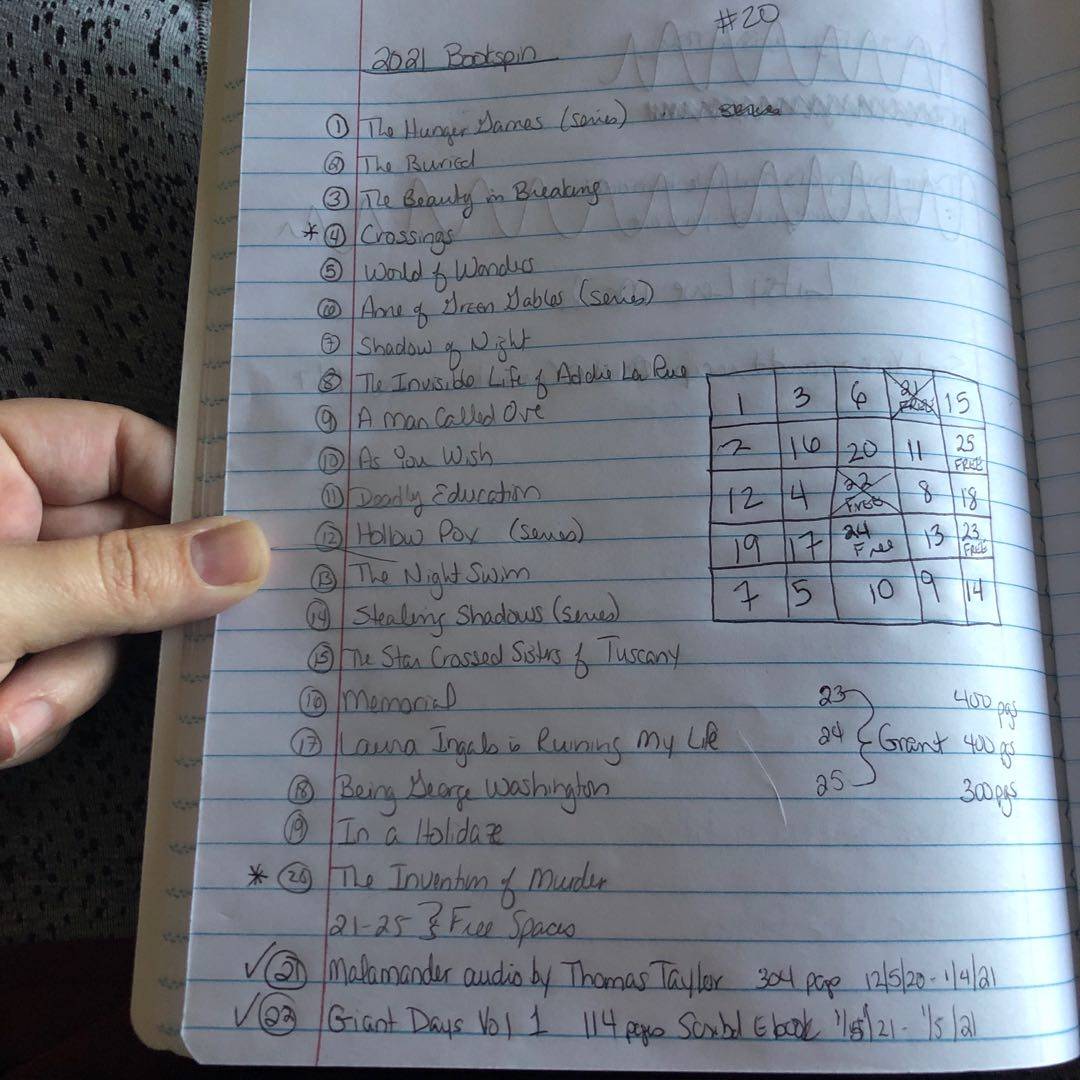 #20
2021 Bookspin
① The Hunger Games (series)
② The Buried
③ The Beauty in Breaking
* ④ Crossings
⑤ World of Wonders
⑥ Anne of Green Gables (series)
⑦ Shadow of Night
⑧ The Invisible Life of Addie La Rue
⑨ A Man Called Ove
⑩ As You Wish
⑪ Deadly Education
⑫ Hollow Pox (series)
⑬ The Night Swim
⑭ Stealing Shadows (series)
⑮ The Star Crossed Sisters of Tuscany
⑯ Memorial
⑰ Laura Ingals is Ruining My Life
⑱ Being George Washington
⑲ In a Holidaze
* ⑳ The Invention of Murder
21-25 } Free Spaces
✓ ㉑ Malamander audio by Thomas Taylor 304 page 12/5/20 - 1/4/21
✓ ㉒ Giant Days Vol 1 114 pages Scribd Ebook 1/5/21 - 1/5/21
1 3 6 21 FREE 15
2 16 20 11 25 FREE
12 4 22 FREE 8 18
19 17 24 Free 13 23 FREE
7 5 10 9 14
23 400 pgs
24 } Grant 400 pgs
25 300 pgs